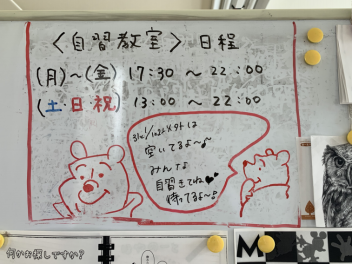 〈自習教室〉日程
(月)〜(金) 17:30 〜 22:00
(土・日・祝) 13:00 〜 22:00
以外は
空いてるよ〜
みんな
自習きてね
待ってるよ〜
何かお探しですか？
M